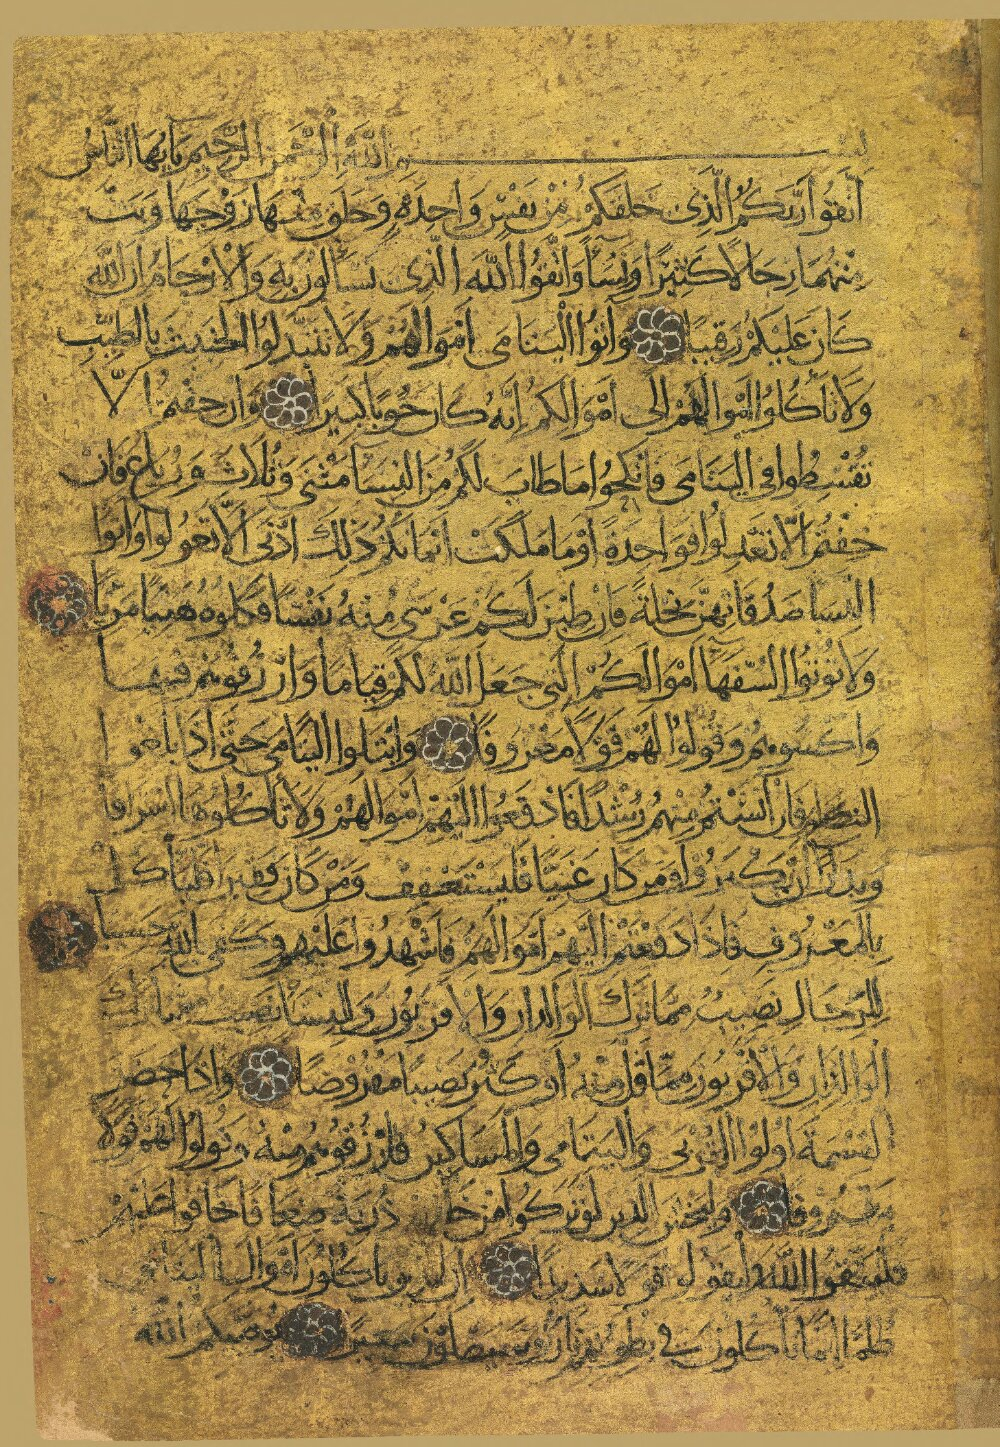 بسم الله الرحمن الرحيم يا يها الناس
اتقوا ربكم الذي خلقكم من نفس واحدة وخلق منها زوجها وبث
منهما رجالا كثيرا ونسا واتقوا الله الذي تسالون به والارحام ان الله
كان عليكم رقيبا واتوا اليتامى اموالهم ولا تتبدلوا الخبيث بالطيب
ولا تاكلوا اموالهم الى اموالكم انه كان حوبا كبيرا وان خفتم الا
تقسطوا في اليتامى فانكحوا ما طاب لكم من النسا مثنى وثلاث ورباع فان
خفتم الا تعدلوا فواحدة او ما ملكت ايمانكم ذلك ادنى الا تعولوا واتوا
النسا صدقاتهن نحلة فان طبن لكم عن شي منه نفسا فكلوه هنيا مريا
ولا تؤتوا السفها اموالكم التي جعل الله لكم قياما وارزقوهم فيها
واكسوهم وقولوا لهم قولا معروفا وابتلوا اليتامى حتى اذا بلغوا
النكاح فان آنستم منهم رشدا فادفعوا اليهم اموالهم ولا تاكلوها اسرافا
وبدارا ان يكبروا ومن كان غنيا فليستعفف ومن كان فقيرا فليأكل
بالمعروف فاذا دفعتم اليهم اموالهم فاشهدوا عليهم وكفى بالله حسيبا
للرجال نصيب مما ترك الوالدان والاقربون وللنسا نصيب مما ترك
الوالدان والاقربون مما قل منه او كثر نصيبا مفروضا واذا حضر
القسمة اولوا القربى واليتامى والمساكين فارزقوهم منه وقولوا لهم قولا
معروفا وليخش الذين لو تركوا من خلفهم ذرية ضعافا خافوا عليهم
فليتقوا الله وليقولوا قولا سديدا ان الذين ياكلون اموال اليتامى
ظلما انما ياكلون في بطونهم نارا وسيصلون سعيرا يوصيكم الله